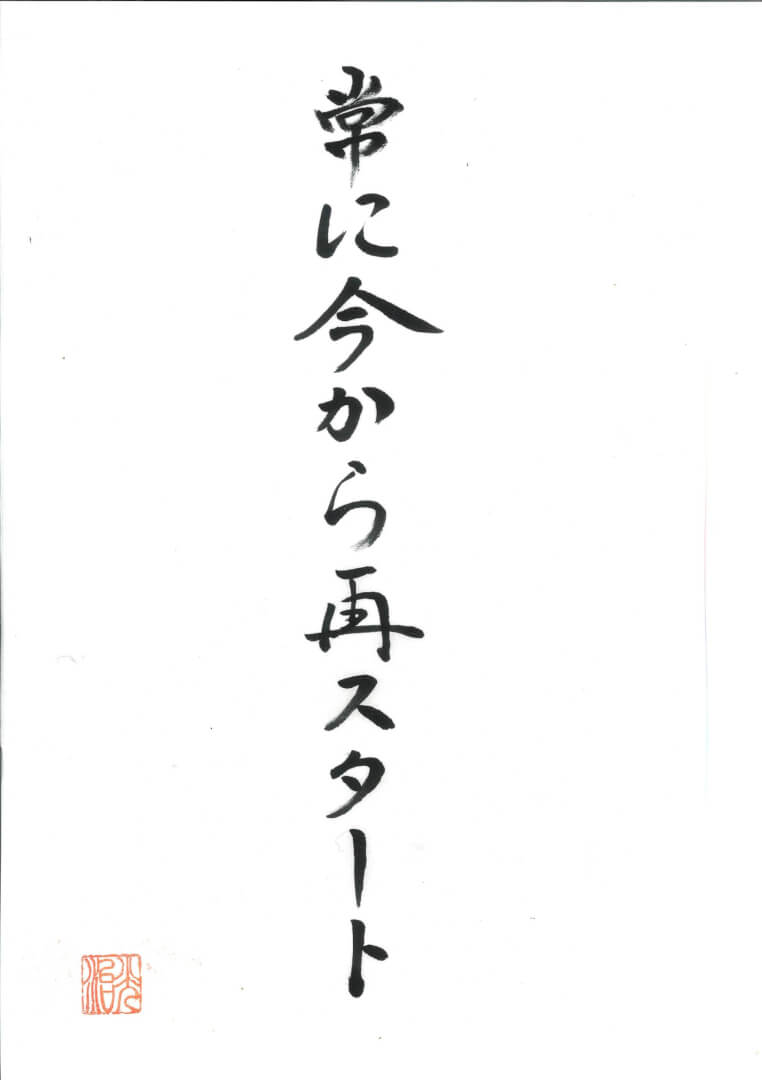 常に今から再スタート